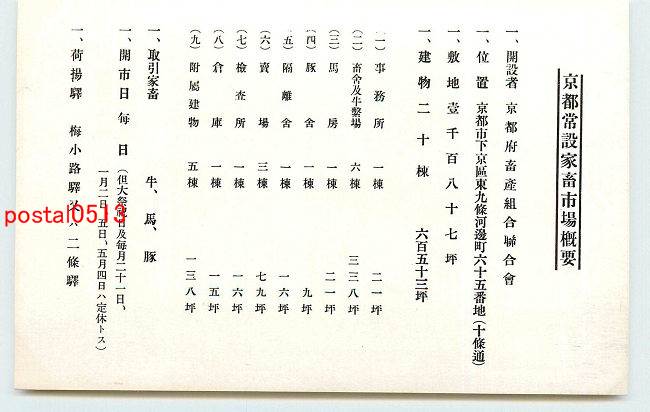 京都常設家畜市場概要
一、開設者 京都府畜產組合聯合會
一、位置 京都市下京區東九條河邊町六十五番地(十條通)
一、敷地壹千百八十七坪
一、建物二十棟 六百五十三坪
(一)事務所 一棟 二一坪
(二)畜舍及牛繫場 六棟 三三八坪
(三)馬房 一棟 二一坪
(四)豚舍 一棟 九坪
(五)隔離舍 一棟 一六坪
(六)賣場 三棟 七九坪
(七)檢査所 一棟 一六坪
(八)倉庫 一棟 一五坪
(九)附屬建物 五棟 一三八坪
一、取引家畜 牛、馬、豚
一、開市日 每日(但大祭祝日及每月二十一日、
一月二日、五日、五月四日ハ定休トス)
一、荷揚驛 梅小路驛 二條驛
postal0513